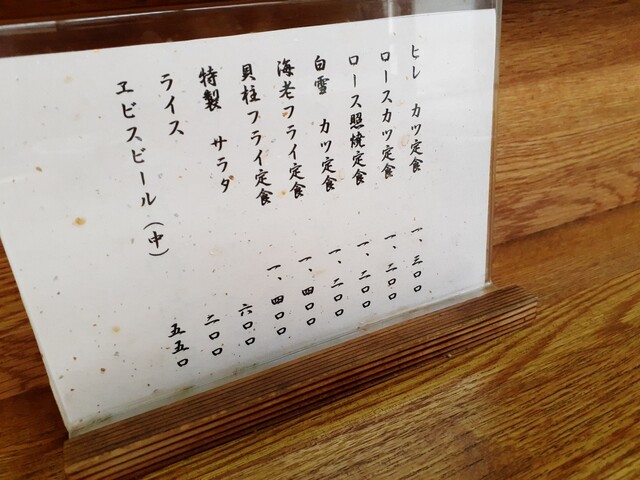 ヒレ カツ定食 一、三〇〇
ロースカツ定食 一、二〇〇
ロース照焼定食 一、二〇〇
白雪 カツ定食 一、二〇〇
海老フライ定食 一、四〇〇
貝柱フライ定食 一、四〇〇
特製 サラダ 六〇〇
ライス 二〇〇
ヱビスビール(中) 五五〇